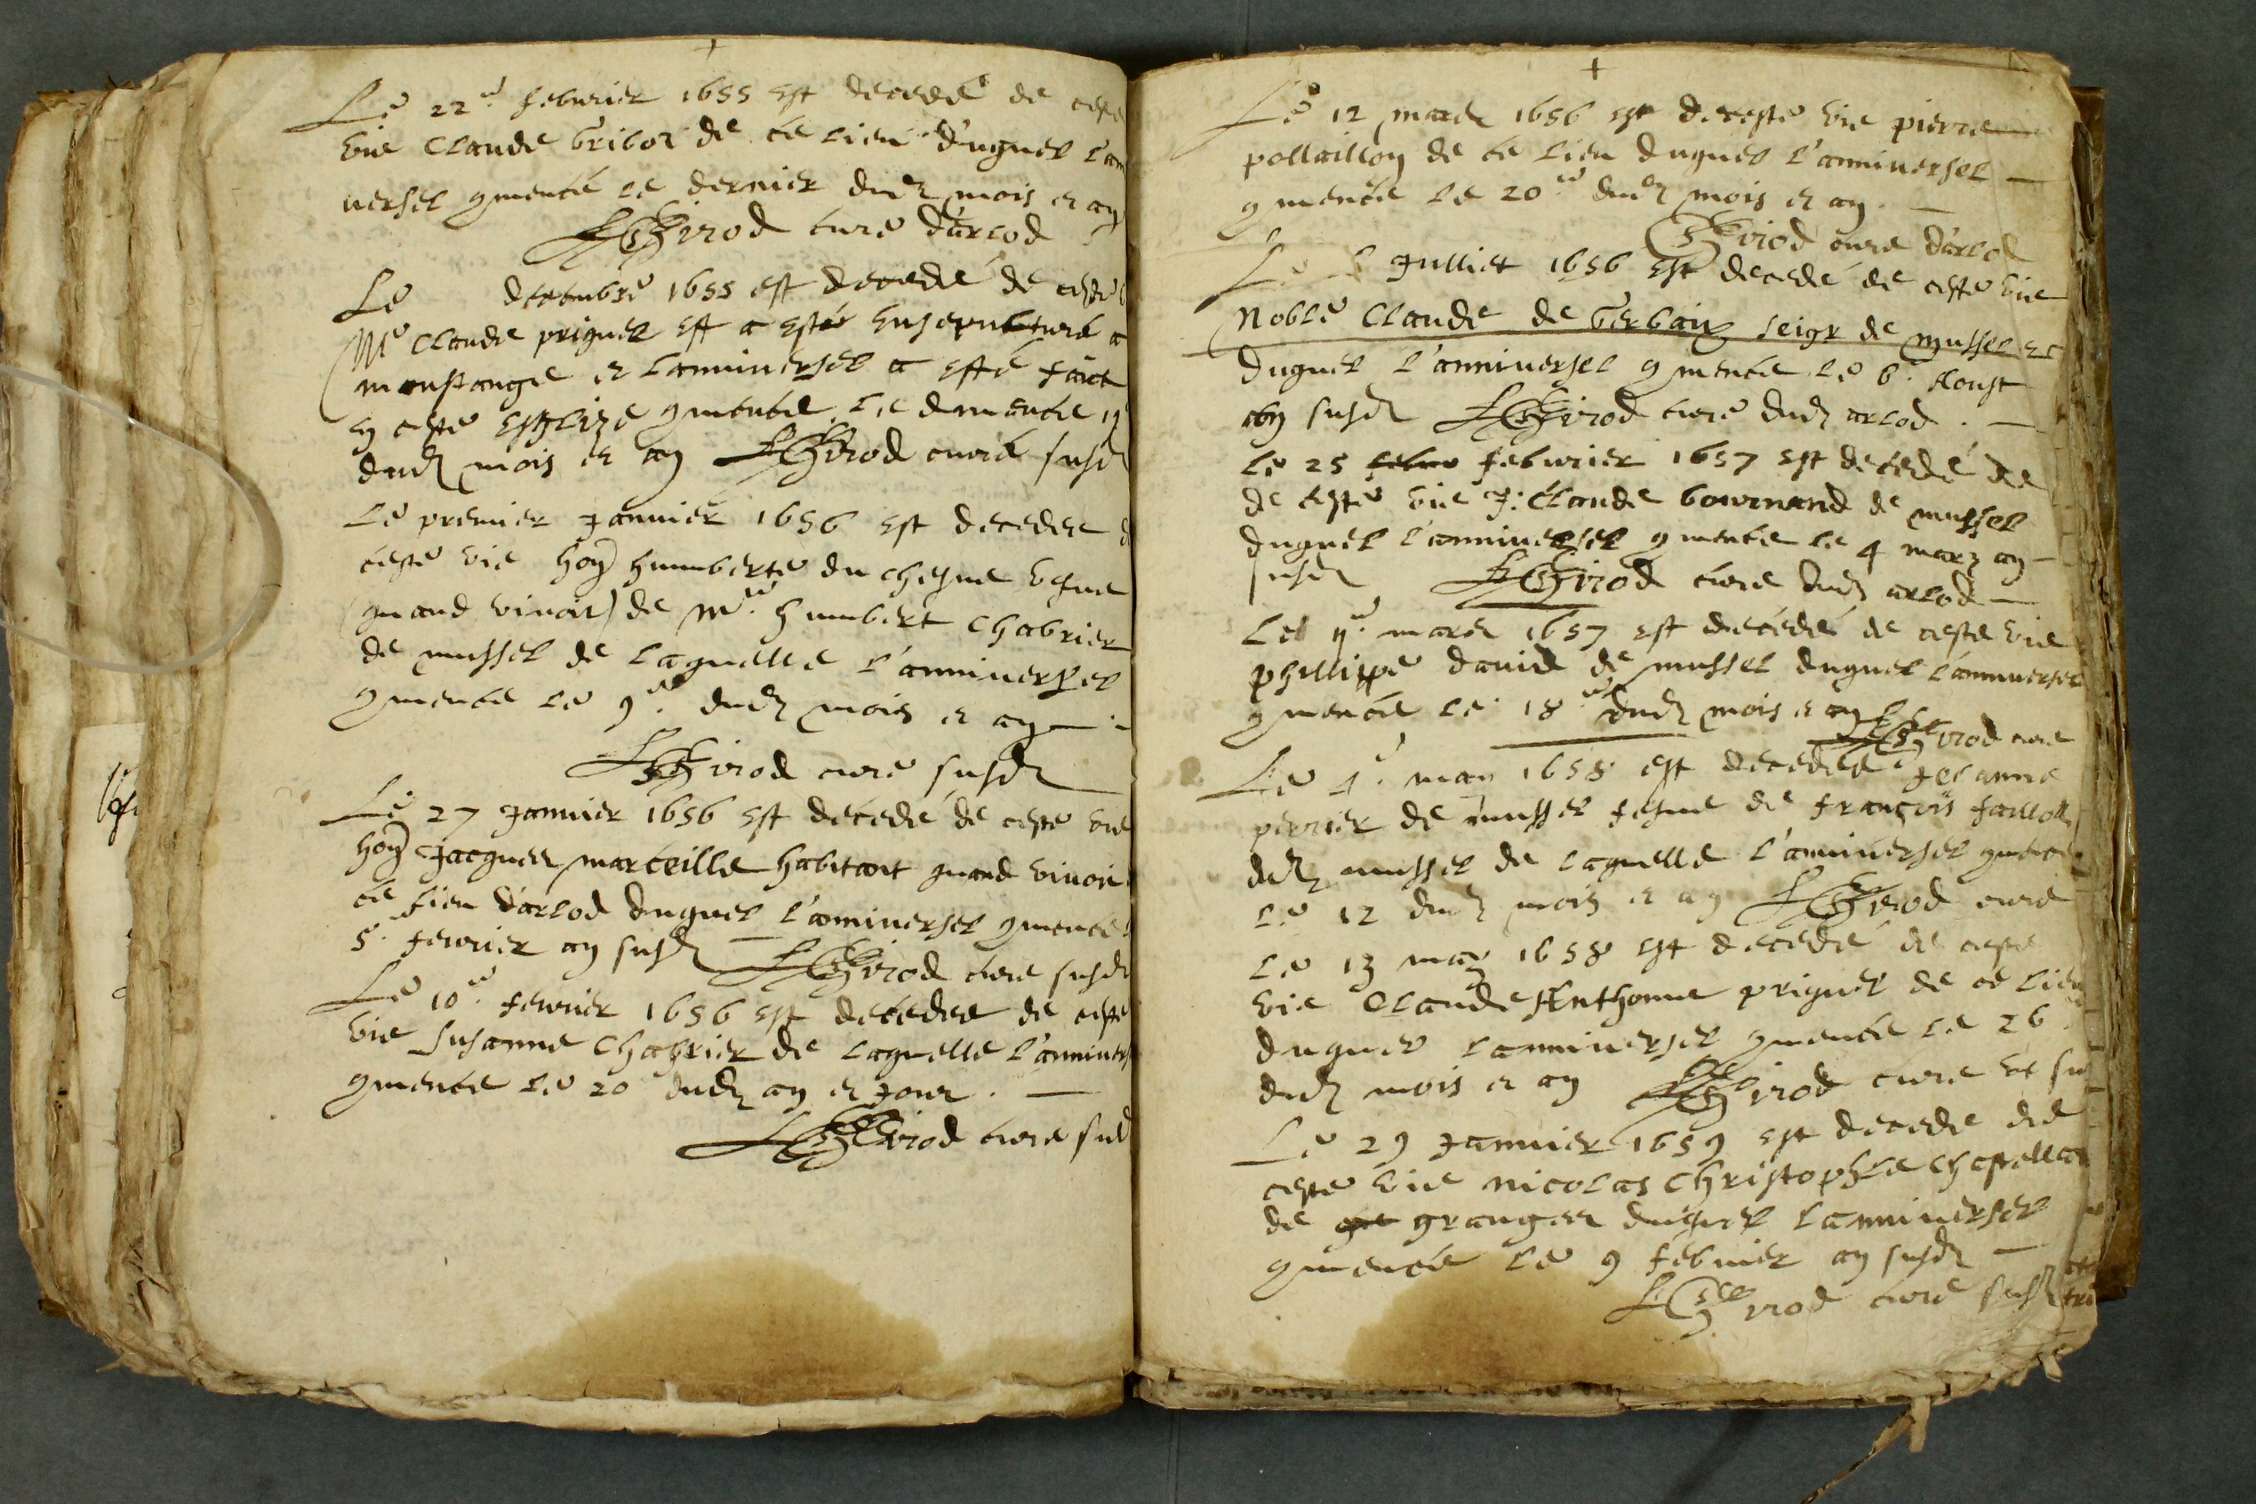 Le 22e febvrier 1655 est decedé de ceste
vie Claude Gribor de ce lieu duquel l'an
versel gmencé le dernier dud mois et an
Girod curé d'arlod
Le decembre 1655 est decedé de ceste
Me Claude priquel est a esté ensepulturé a
et lanniversel a esté faict
en ceste esglize gmencé le
dud mois et an Girod curé susd
Le premier Janvier 1656 est decedee
ceste vie hon humberte du chesne vefue
(quand vivoit) de Me humbert Chabrier
de mussel de laquelle l'anniversel
gmence le 9e dud mois et an
Girod curé susd
Le 27 Janvier 1656 est decedé de ceste vie
hon Jacques marceille habitant quand vivoit
ce lieu d'arlod duquel l'anniversel gmence
5. fevrier an susd Girod curé susd
Le 10e fevrier 1656 est decedee de ceste
vie Susanne Chabrier de laquelle l'annivers
gmence le 20 dud an et Jour
Girod curé susd
Le 12 mars 1656 est de ceste vie pierre
pollaillon de ce lieu duquel l'anniversel
gmence le 20e dud mois et an
Girod curé d'arlod
Le Julliet 1656 est decedé de ceste vie
Noble Claude de Gerbaix seigr de mussel et
duquel l'anniversel gmence le 6. Aoust
an susd Girod curé dud arlod
le 25 febvrier 1657 est decedé de
de ceste vie J. Claude bournand de mussel
duquel l'anniversel gmence le 4 marz an
susd Girod curé dud arlod
Le mars 1657 est decedé de ceste vie
phillippe david de mussel duquel l'anniversel
gmence le 18e dud mois et an Girod curé
Le 4e may 1658 est decedee Jeanne
perrier de mussel feme de françois faillon
dud mussel de laquelle l'anniversel gmence
le 12 dud mois et an Girod curé
le 13 may 1658 est decedé de ceste
vie Claude Anthonne priquet de ce lieu
duquel lanniversel gmence le 26
dud mois et an Girod curé
Le 29 Janvier 1659 est decedé de
ceste vie nicolas Christophle
de granges duquel lanniversel
gmence le 9 febvrier an susd
Girod curé susd